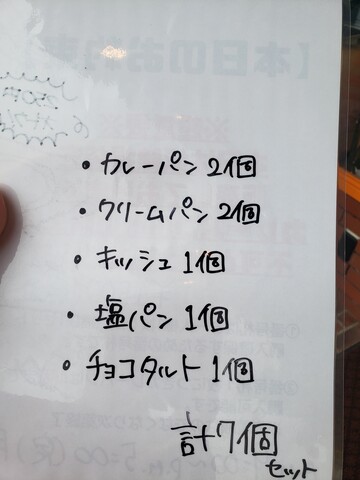 ・カレーパン 2個
・クリームパン 2個
・キッシュ 1個
・塩パン 1個
・チョコタルト 1個
計7個
セット